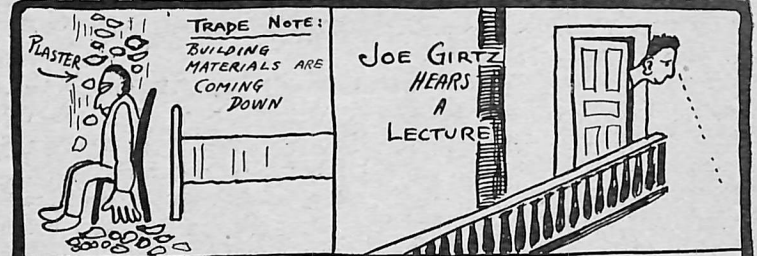 PLASTER
TRADE NOTE:
BUILDING
MATERIALS ARE
COMING
DOWN
JOE GIRTZ
HEARS
A
LECTURE